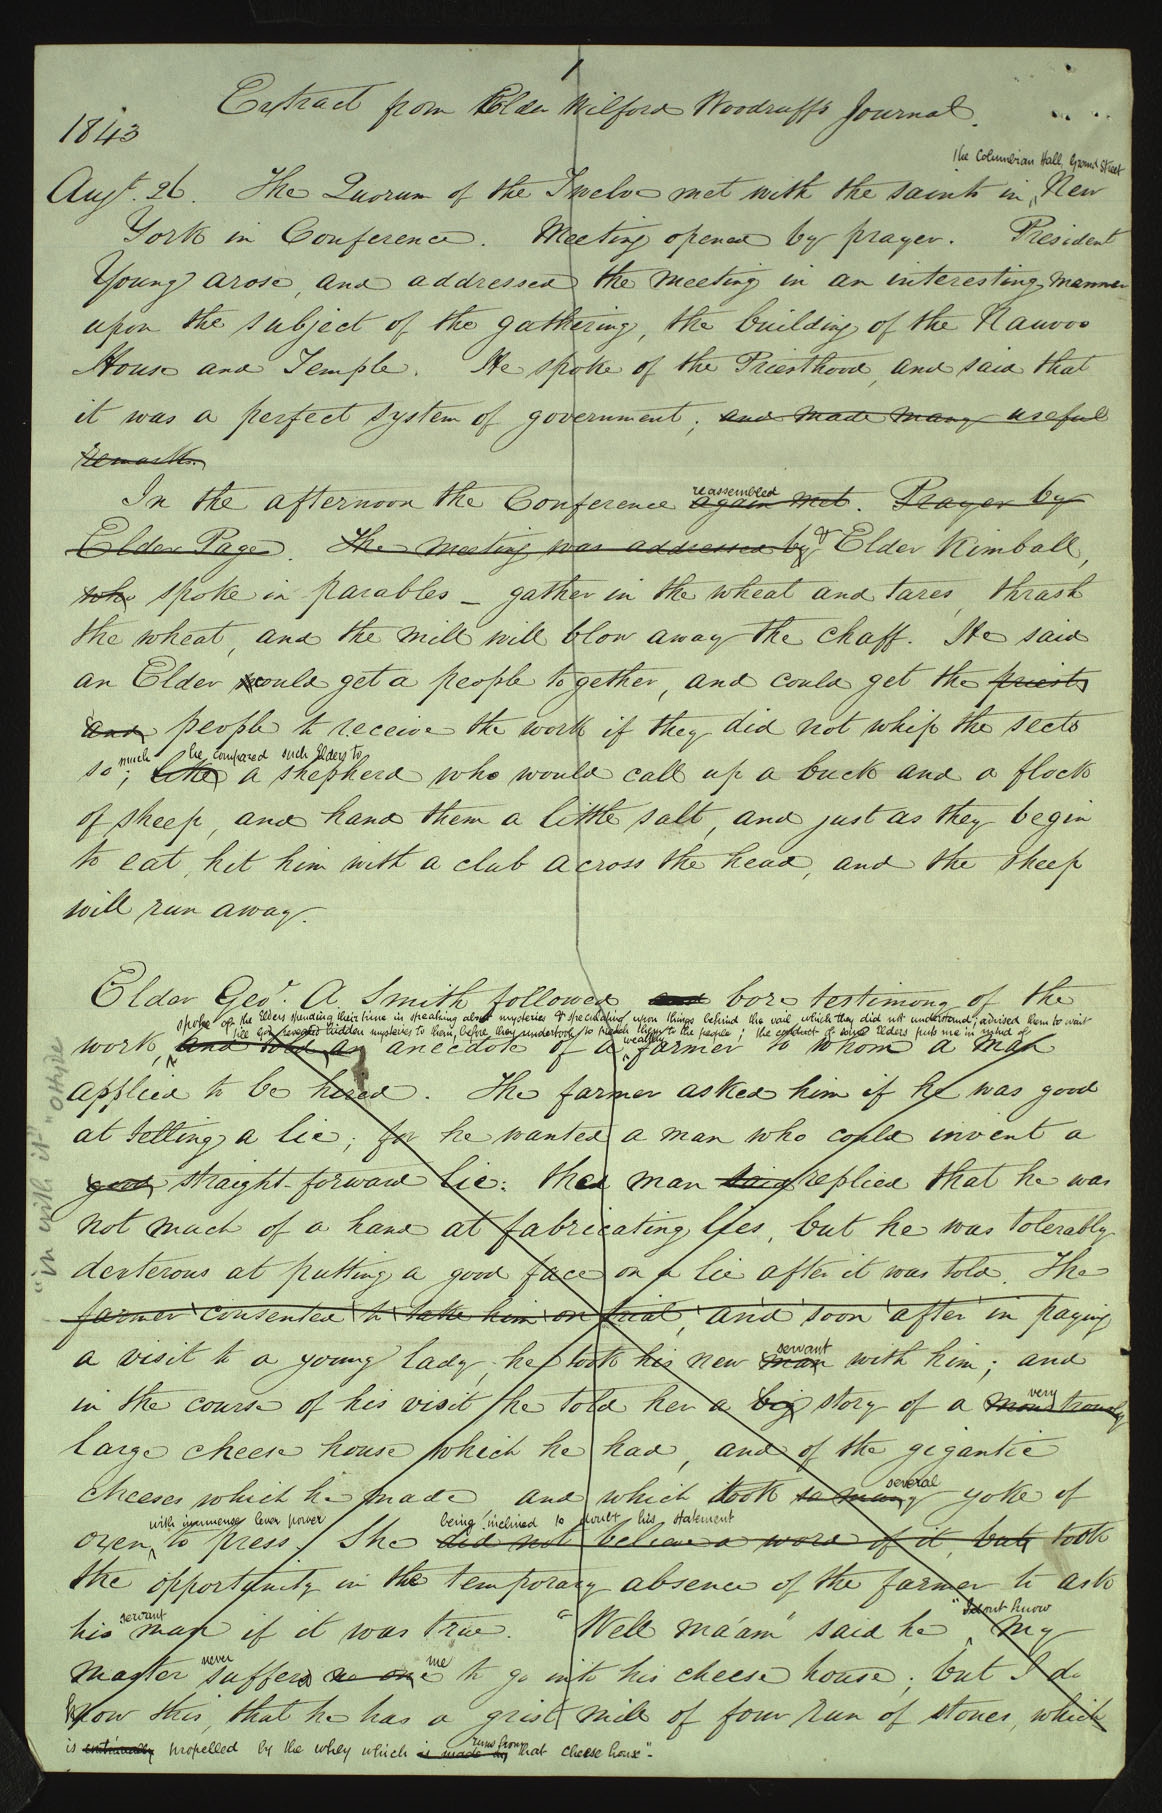 1
Extract from Elder Wilford Woodruff's Journal.
1843
The Columbian Hall, Grand Street
Augt. 26. The Quorum of the Twelve met with the saints in New
York in Conference. Meeting opened by prayer. President
Young arose, and addressed the meeting in an interesting manner
upon the subject of the gathering, the building of the Nauvoo
House and Temple. He spoke of the Priesthood, and said that
it was a perfect system of government; and made many useful
remarks.
reassembled
In the afternoon the Conference again met. Prayer by
Elder Page. The meeting was addressed by & Elder Kimball,
who spoke in parables – gather in the wheat and tares, thrash
the wheat, and the mill will blow away the chaff. He said
an Elder would get a people together, and could get the priests
and people to receive the work if they did not whip the sects
much he compared such Elders to
so; like a shepherd who would call up a buck and a flock
of sheep, and hand them a little salt, and just as they begin
to eat, hit him with a club across the head, and the sheep
will run away.
Elder Geo. A. Smith followed and bore testimony of the
spoke of the Elders spending their time in speaking about mysteries & speculating upon things behind the vail which they did not understand; advised them to wait
till God revealed hidden mysteries to them, before they undertook to preach them to the people; the conduct of some Elders puts me in mind of
wealthy
work, and told an anecdote of a farmer to whom a man
applied to be hired. The farmer asked him if he was good
at telling a lie; for he wanted a man who could invent a
good straight-forward lie: the man said replied that he was
not much of a hand at fabricating lies, but he was tolerably
dexterous at putting a good face on a lie after it was told. The
farmer consented to take him on trial, and soon after in paying
servant
a visit to a young lady, he took his new man with him; and
very
in the course of his visit he told her a big story of a monstrously
large cheese house which he had, and of the gigantic
several
cheeses which he made, and which took so many yoke of
with immense lever power being inclined to doubt his statement
oxen, to press. She did not believe a word of it, but took
the opportunity in the temporary absence of the farmer to ask
servant "I dont know
his man if it was true. "Well ma'am" said he, My
never me
master suffers no one to go into his cheese house; but I do
know this, that he has a grist mill of four run of stones, which
runs from
is continually propelled by the whey which is made in that cheese house".
"in with it" "othyde